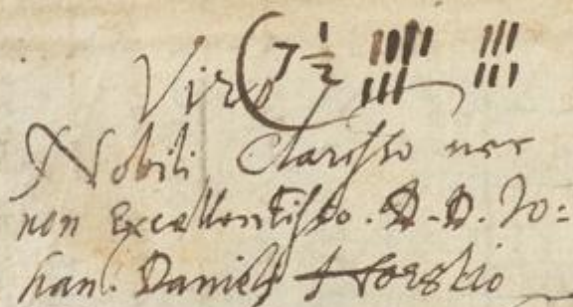 Viro 7 1/2
Nobili Clarisso nec
non Excellentisso. D. D. Jo=
han. Danieli Horstio